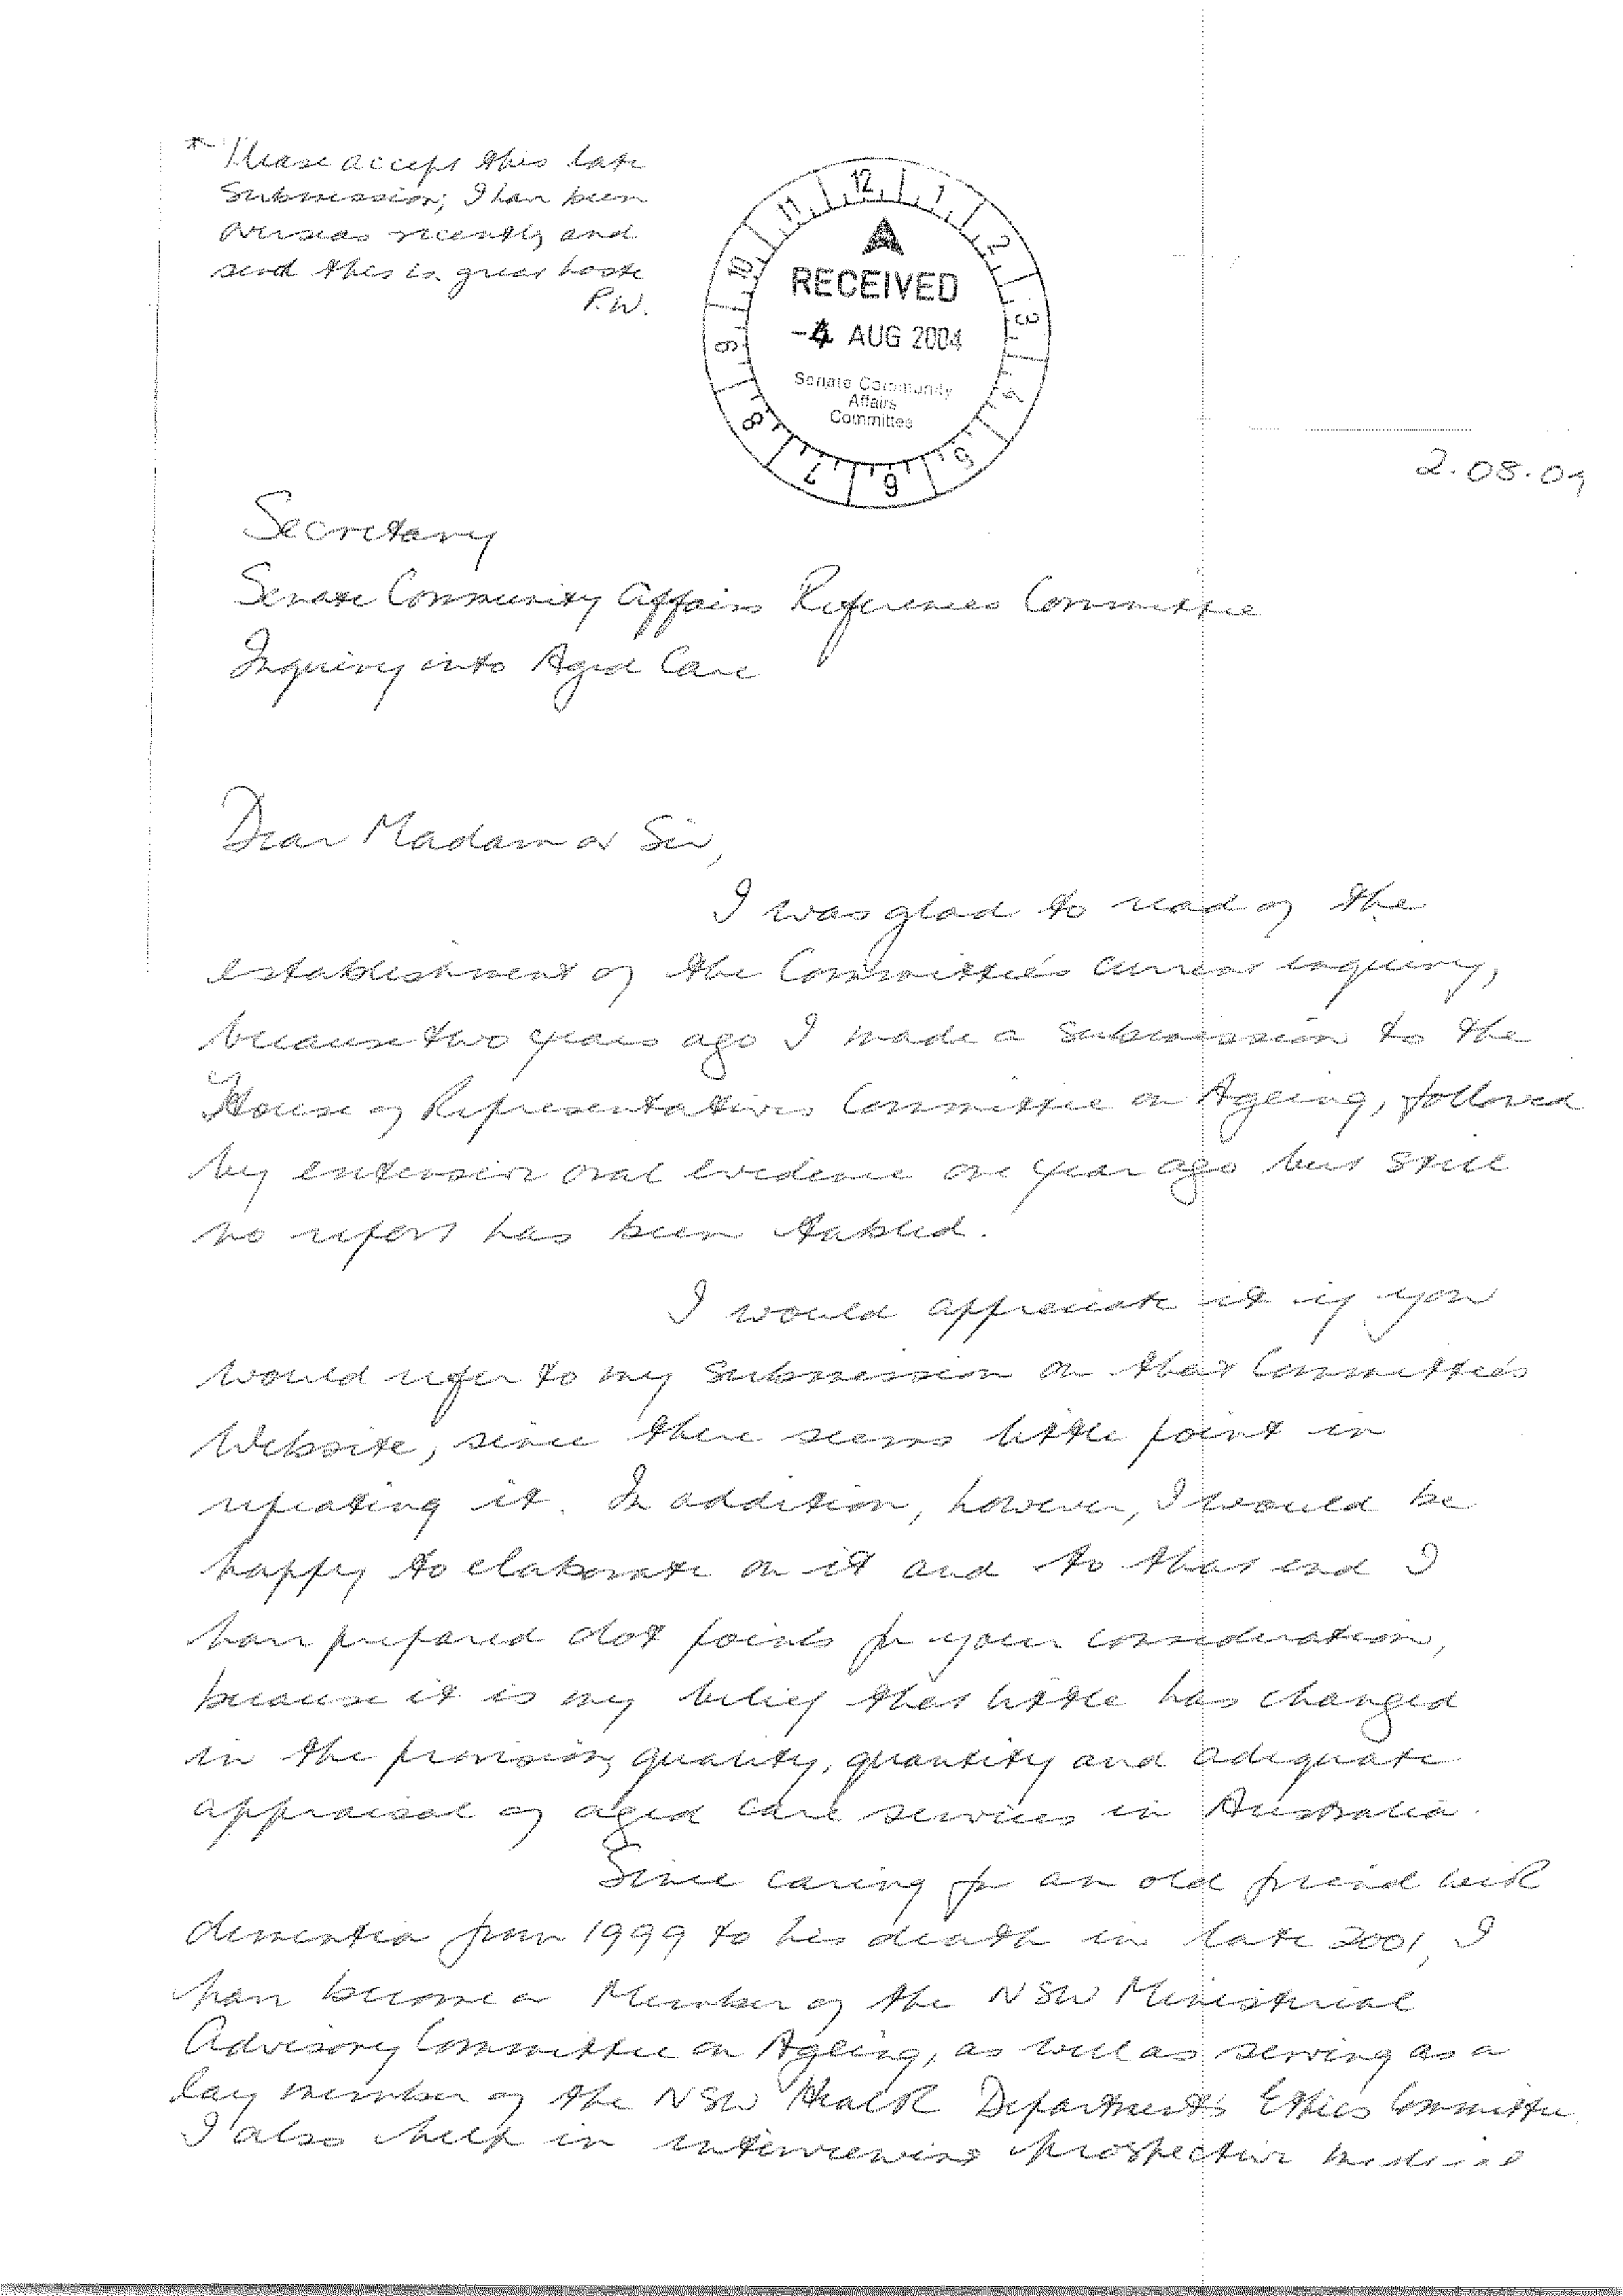 * Please accept this late
submission; I have been
overseas recently and
send this in great haste
P.W.
12 1 2 3 4 5 6 7 8 9 10 11
RECEIVED
-4 AUG 2004
Senate Community
Affairs
Committee
2.08.04
Secretary
Senate Community Affairs References Committee
Inquiry into Aged Care
Dear Madam or Sir,
I was glad to read of the
establishment of the Committee's current inquiry,
because two years ago I made a submission to the
House of Representatives Committee on Ageing, followed
by extensive oral evidence one year ago but still
no report has been tabled.
I would appreciate it if you
would refer to my submission on that Committee's
Website, since there seems little point in
repeating it. In addition, however, I would be
happy to elaborate on it and to that end I
have prepared dot points for your consideration,
because it is my belief that little has changed
in the provision, quality, quantity and adequate
appraisal of aged care services in Australia.
Since caring for an old friend with
dementia from 1999 to his death in late 2001, I
have become a Member of the NSW Ministerial
Advisory Committee on Ageing, as well as serving as a
lay member of the NSW Health Department's Ethics Committee.
I also help in interviewing prospective medical